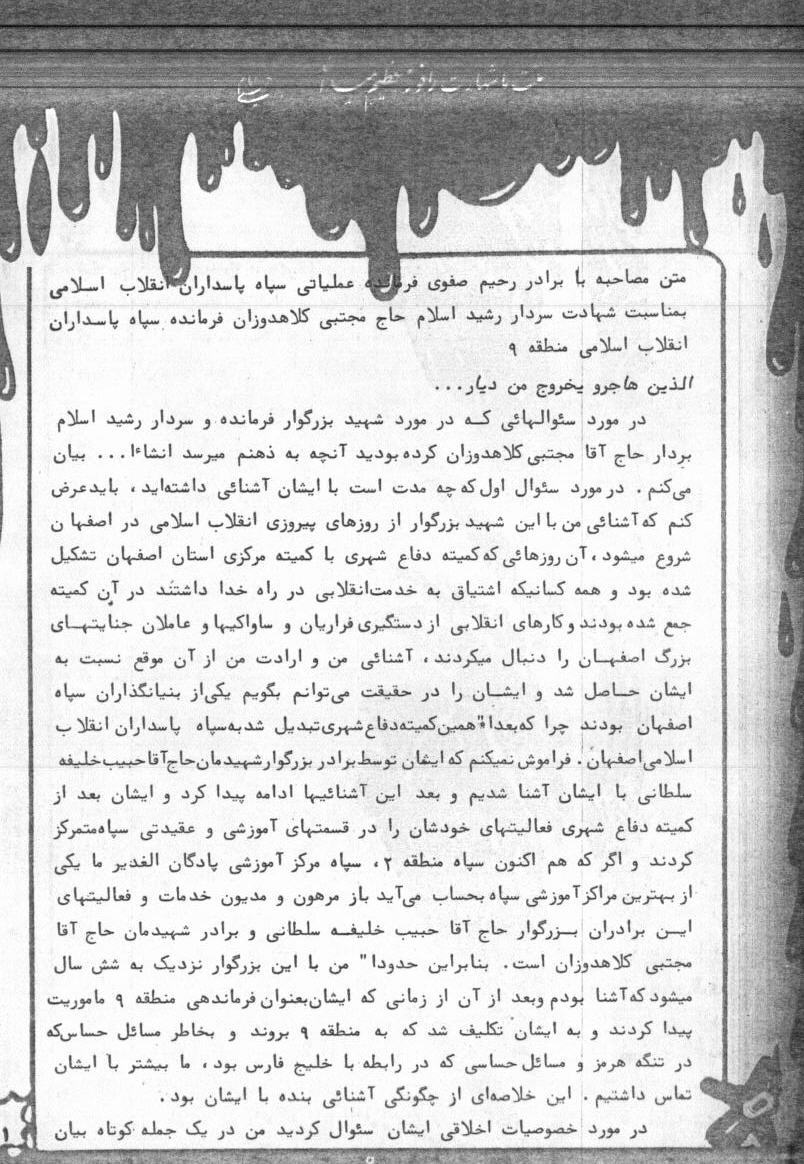 متن مصاحبه با برادر رحیم صفوی فرمانده عملیاتی سپاه پاسداران انقلاب اسلامی
بمناسبت شهادت سردار رشید اسلام حاج مجتبی کلاهدوزان فرمانده سپاه پاسداران
انقلاب اسلامی منطقه ۹
الذین هاجرو یخروج من دیار...
در مورد سئوالهائی که در مورد شهید بزرگوار فرمانده و سردار رشید اسلام
بردار حاج آقا مجتبی کلاهدوزان کرده بودید آنچه به ذهنم میرسد انشاءا... بیان
می‌کنم . در مورد سئوال اول که چه مدت است با ایشان آشنائی داشته‌اید ، باید عرض
کنم که آشنائی من با این شهید بزرگوار از روزهای پیروزی انقلاب اسلامی در اصفهان
شروع میشود ، آن روزهائی که کمیته دفاع شهری با کمیته مرکزی استان اصفهان تشکیل
شده بود و همه کسانیکه اشتیاق به خدمت‌انقلابی در راه خدا داشتند در آن کمیته
جمع شده بودند و کارهای انقلابی از دستگیری فراریان و ساواکیها و عاملان جنایتهای
بزرگ اصفهان را دنبال میکردند ، آشنائی من و ارادت من از آن موقع نسبت به
ایشان حاصل شد و ایشان را در حقیقت می‌توانم بگویم یکی‌از بنیانگذاران سپاه
اصفهان بودند چرا که بعدا" همین کمیته دفاع شهری تبدیل شد به سپاه پاسداران انقلاب
اسلامی اصفهان . فراموش نمیکنم که ایشان توسط برادر بزرگوار شهیدمان حاج آقا حبیب خلیفه
سلطانی با ایشان آشنا شدیم و بعد این آشنائیها ادامه پیدا کرد و ایشان بعد از
کمیته دفاع شهری فعالیتهای خودشان را در قسمتهای آموزشی و عقیدتی سپاه متمرکز
کردند و اگر که هم اکنون سپاه منطقه ۲ ، سپاه مرکز آموزشی پادگان الغدیر ما یکی
از بهترین مراکز آموزشی سپاه بحساب می‌آید باز مرهون و مدیون خدمات و فعالیتهای
این برادران بزرگوار حاج آقا حبیب خلیفه سلطانی و برادر شهیدمان حاج آقا
مجتبی کلاهدوزان است . بنابراین حدودا" من با این بزرگوار نزدیک به شش سال
میشود که آشنا بودم وبعد از آن از زمانی که ایشان بعنوان فرماندهی منطقه ۹ ماموریت
پیدا کردند و به ایشان تکلیف شد که به منطقه ۹ بروند و بخاطر مسائل حساس که
در تنگه هرمز و مسائل حساسی که در رابطه با خلیج فارس بود ، ما بیشتر با ایشان
تماس داشتیم . این خلاصه‌ای از چگونگی آشنائی بنده با ایشان بود .
در مورد خصوصیات اخلاقی ایشان سئوال کردید من در یک جمله کوتاه بیان